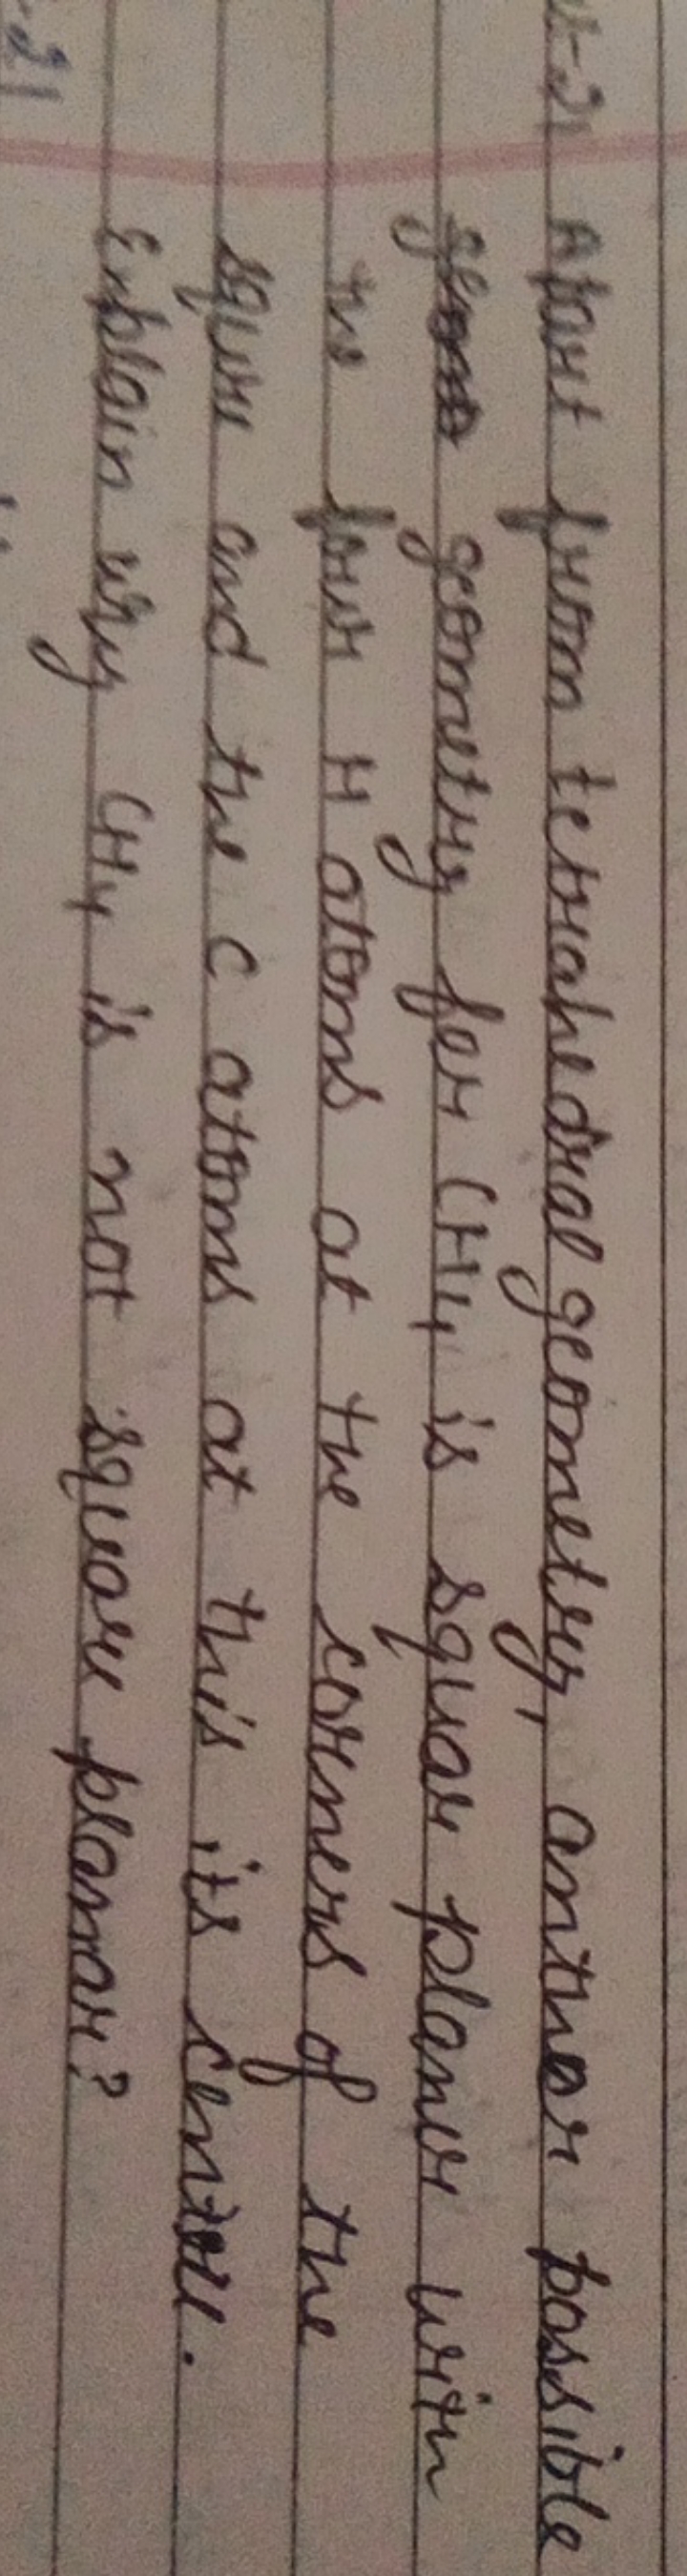 Apart from tetrahedral geometry, anther possible
geometry for CH4 is squar planer with
the four H atoms at the corners of the
squre and the C atoms at this its centre.
Explain why CH4 is not square planar?